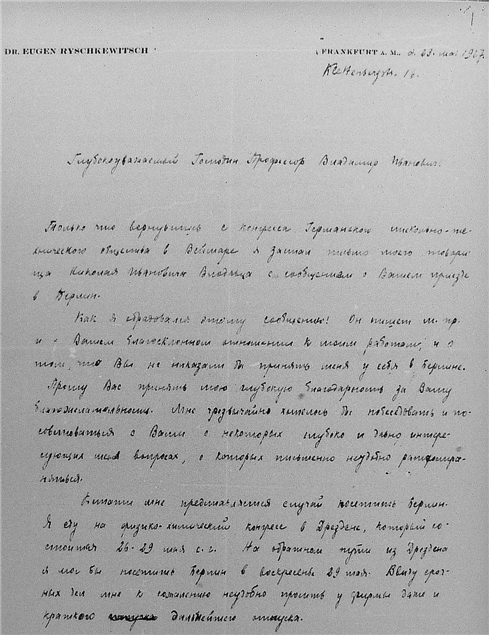 DR. EUGEN RYSCHKEWITSCH
FRANKFURT A. M., d. 23. 1927.
16.
Глубокоуважаемый Господин Профессор Владимир Иванович!
Только что вернувшись с конгресса Германского стекольно-те-
хнического общества в Веймаре я застал письмо моего товари-
ща Николая Ивановича с сообщением о Вашем приезде
в Берлин.
Как я обрадовался этому сообщению! Он пишет м. пр.
и о Вашем благосклонном отношении к моим работам, и о
том, что Вы не отказали бы принять меня у себя в Берлине.
Прошу Вас принять мою глубокую благодарность за Вашу
благожелательность. Мне чрезвычайно хотелось бы побеседовать и по-
советоваться с Вами о некоторых глубоко и давно интере-
сующих меня вопросах, о которых письменно неудобно
Кстати мне представляется случай посетить Берлин.
Я еду на физико-химический конгресс в Дрездене, который со-
стоится 26-29 мая с. г. На обратном пути из Дрездена
я мог бы посетить Берлин в воскресенье 29 мая. Ввиду сроч-
ных дел мне к сожалению неудобно просить у фирмы даже и
краткого дальнейшего отпуска.